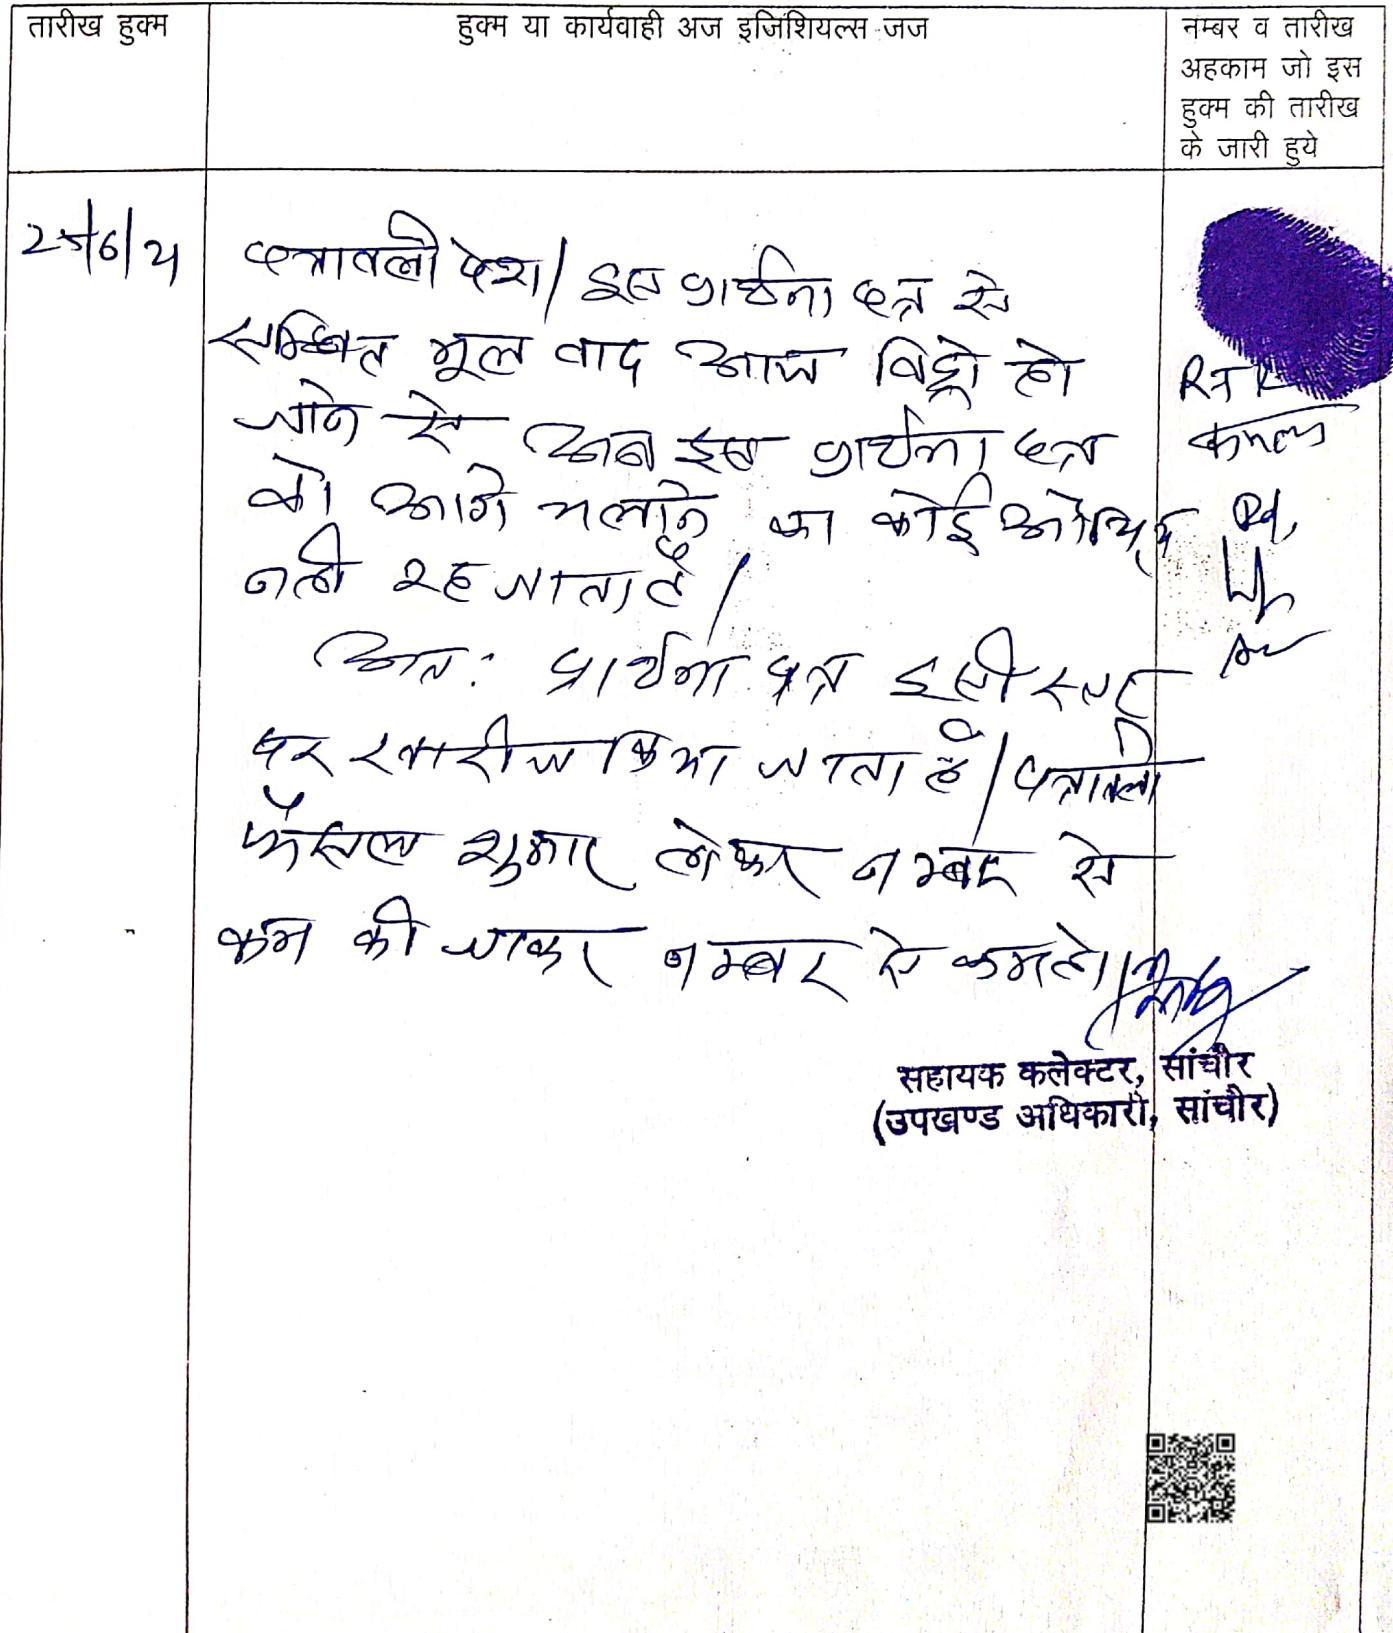 तारीख हुक्म
हुक्म या कार्यवाही अज इजिंशियल्स जज
नम्बर व तारीख
अहकाम जो इस
हुक्म की तारीख
के जारी हुये
पत्रावली पेश। इस प्रार्थना पत्र से
सम्बन्धित मूल वाद आज विड्रो हो
जाने से अब इस प्रार्थना पत्र
को आगे चलाने का कोई औचित्य
नही रह जाता है।
अतः प्रार्थना पत्र इसी स्तर
पर खारीज किया जाता है। पत्रावली
फैसल शुमार होकर नम्बर से
कम की जाकर नम्बर से कम हो।
RTI
कमला
सहायक कलेक्टर, सांचौर
(उपखण्ड अधिकारी, सांचौर)